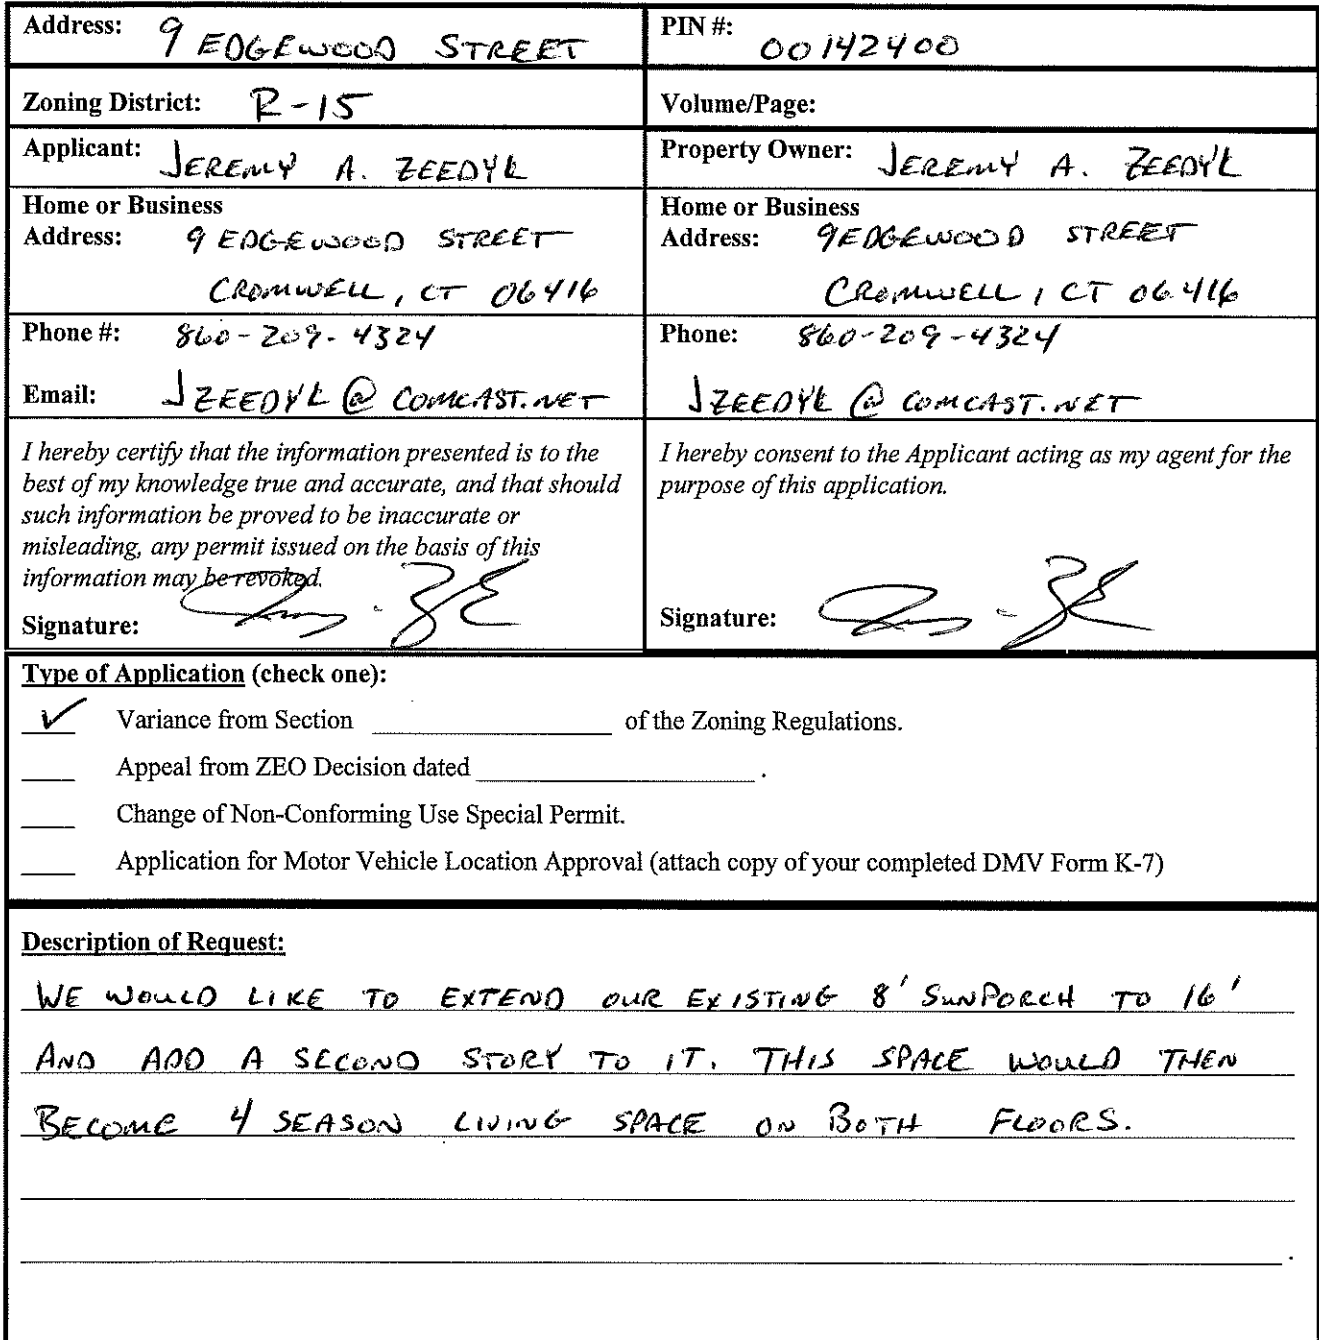 Address: 9 EDGEWOOD STREET
PIN #: 00142400
Zoning District: R-15
Volume/Page:
Applicant: JEREMY A. ZEEDYK
Property Owner: JEREMY A. ZEEDYK
Home or Business
Address: 9 EDGEWOOD STREET
CROMWELL, CT 06416
Home or Business
Address: 9 EDGEWOOD STREET
CROMWELL, CT 06416
Phone #: 860-209-4324
Email: JZEEDYK@COMCAST.NET
Phone: 860-209-4324
JZEEDYK@COMCAST.NET
I hereby certify that the information presented is to the
best of my knowledge true and accurate, and that should
such information be proved to be inaccurate or
misleading, any permit issued on the basis of this
information may be revoked.
Signature:
I hereby consent to the Applicant acting as my agent for the
purpose of this application.
Signature:
Type of Application (check one):
✓ Variance from Section ____ of the Zoning Regulations.
____ Appeal from ZEO Decision dated ____.
____ Change of Non-Conforming Use Special Permit.
____ Application for Motor Vehicle Location Approval (attach copy of your completed DMV Form K-7)
Description of Request:
WE WOULD LIKE TO EXTEND OUR EXISTING 8' SUNPORCH TO 16'
AND ADD A SECOND STORY TO IT. THIS SPACE WOULD THEN
BECOME 4 SEASON LIVING SPACE ON BOTH FLOORS.